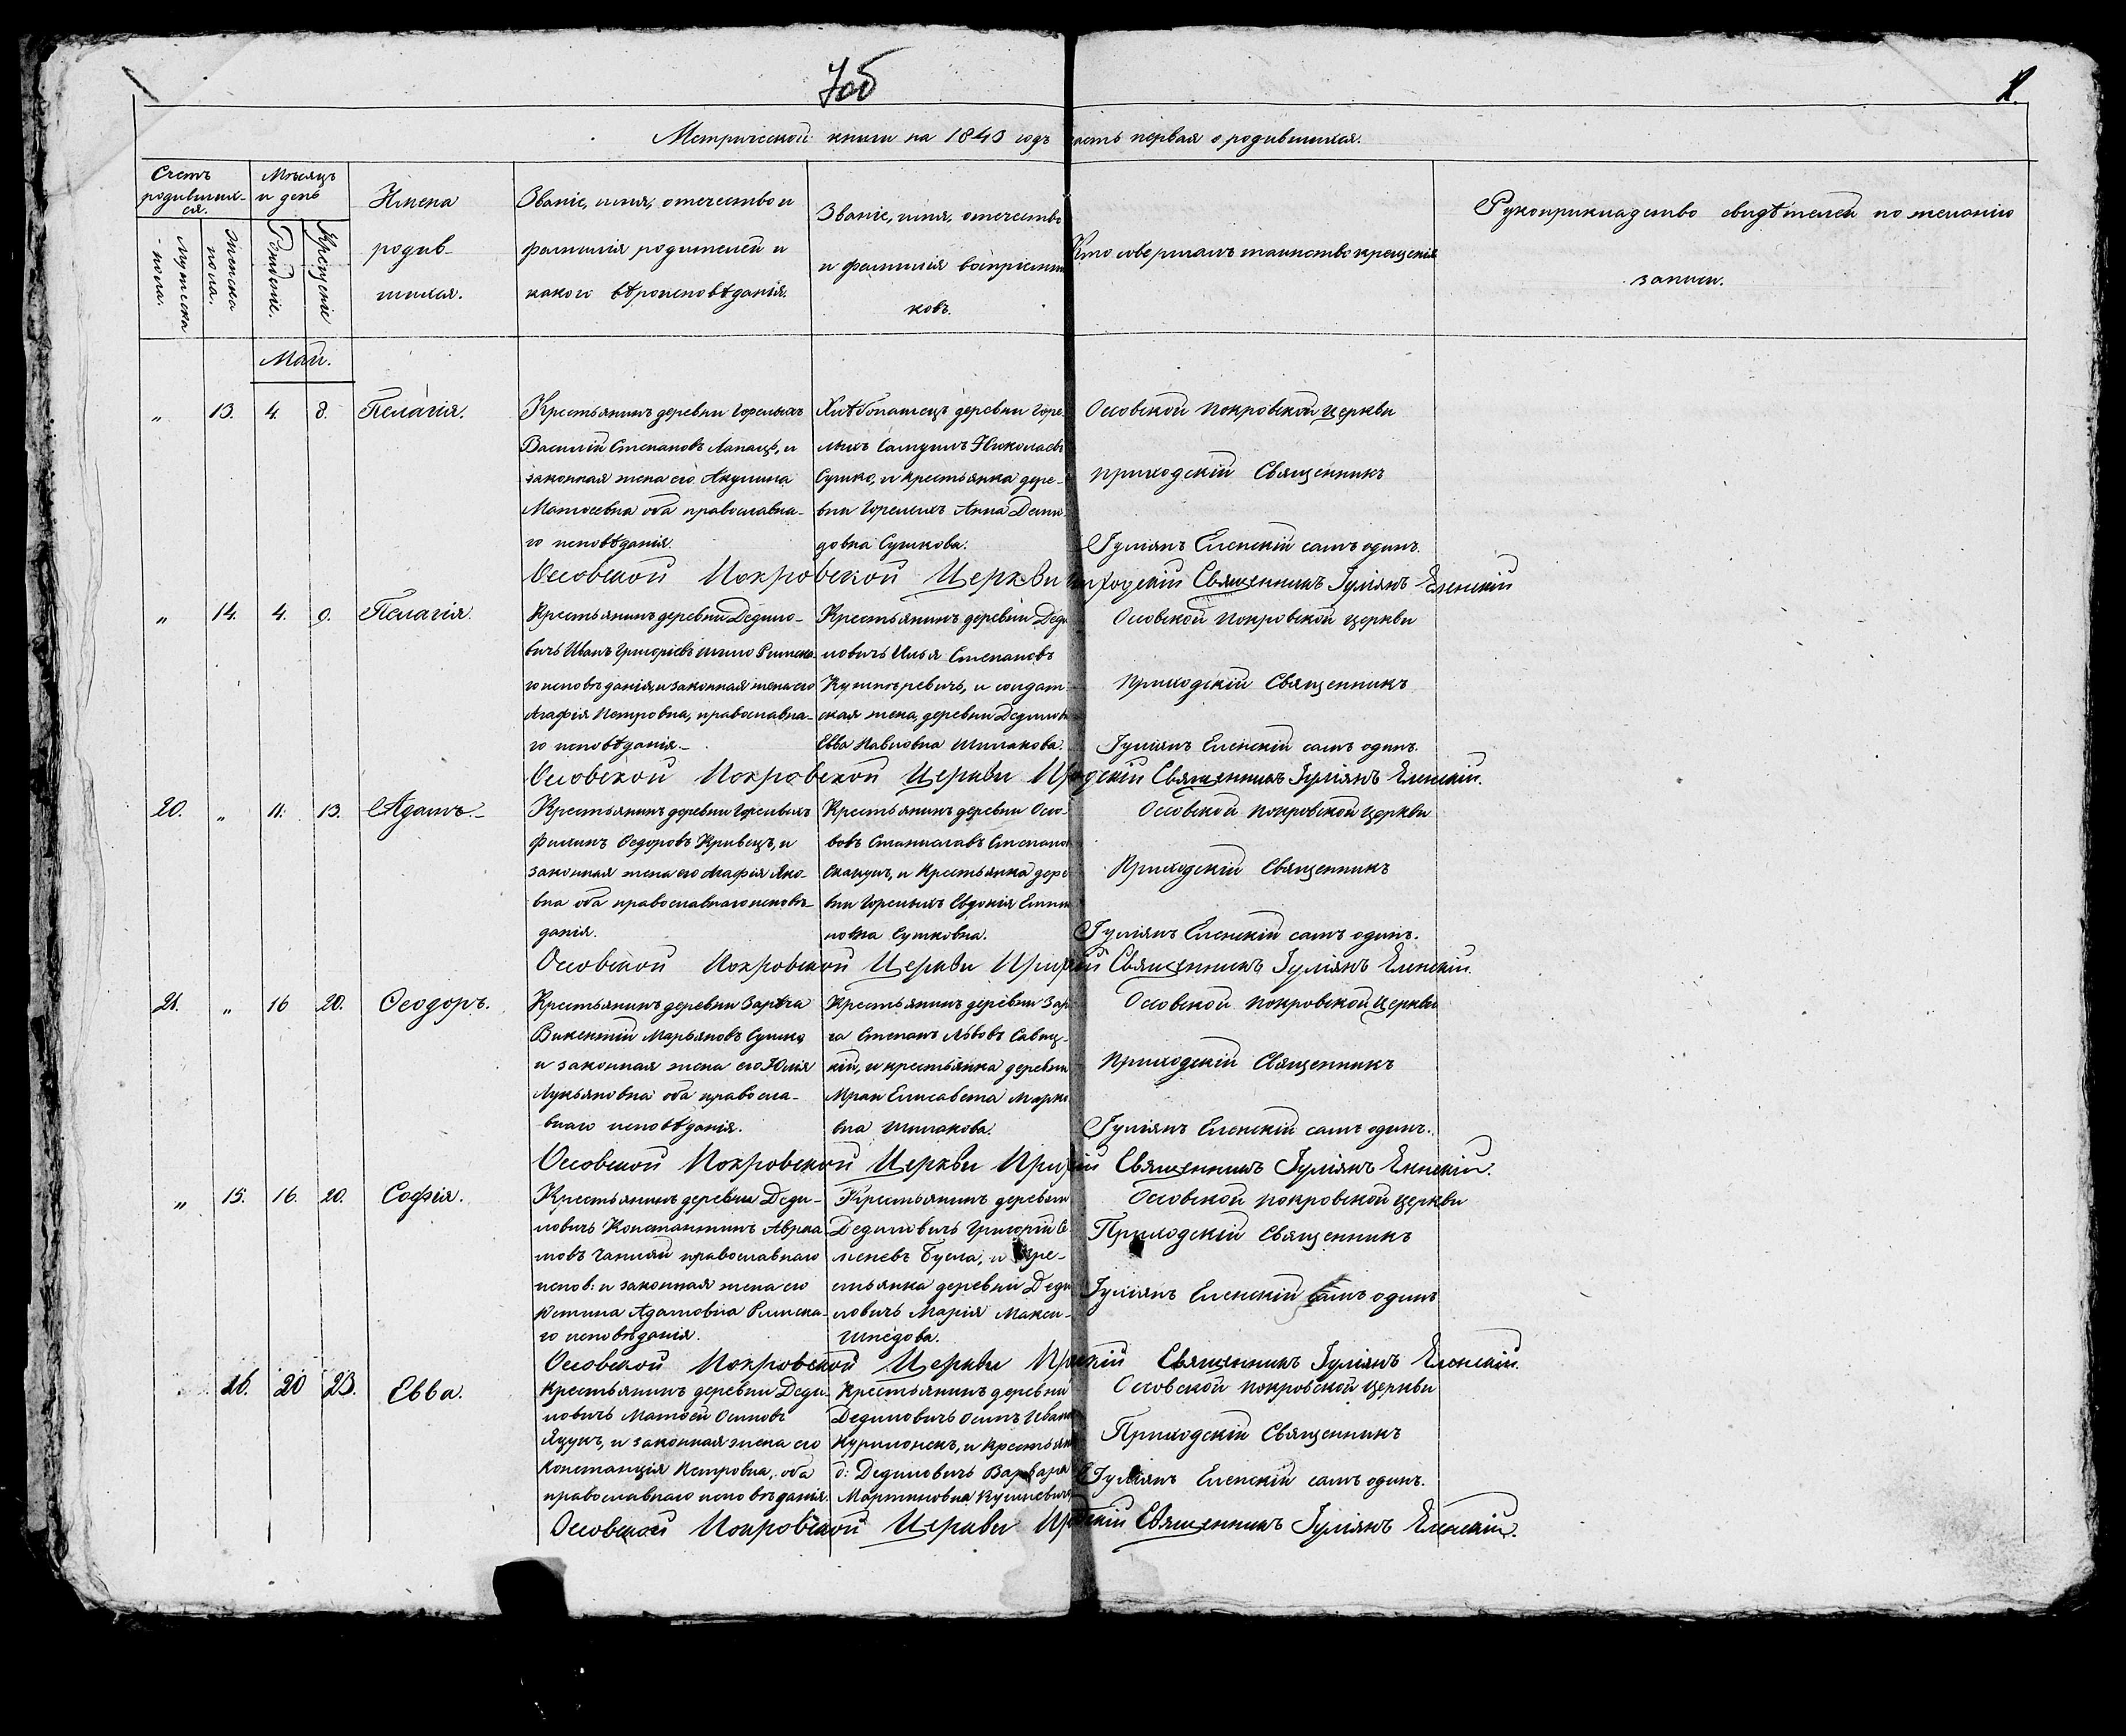 Метрической книги на 1843 годъ часть первая о родившихся.
Счетъ родившихся.
Мужеска пола.
Женска пола.
Мѣсяцъ и день
Рожденіе.
Крещеніе
Имена
родив-
шихся.
Званіе, имя, отечество и
фамилія родителей и
какого вѣроисповѣданія.
Званіе, имя, отечество
и фамилія воспріемни
ковъ.
Кто совершалъ таинство крещенія
Рукоприкладство свидѣтелей по желанію
записи.
Май.
„ 13. 4. 8. Пелагія.
Крестьянинъ деревни Горелыхъ
Василій Степановъ Лапацъ, и
законная жена его Акулина
Матоеевна оба православна-
го исповѣданія.
Хлѣбопашецъ деревни Горе
лыхъ Самуилъ Николаевъ
Сушко, и крестьянка дере-
вни Горелыхъ Анна Деми
довна Сушкова.
Осовской Покровской церкви
приходскій Священникъ
Іуліянъ Еленскій самъ одинъ.
Осовской Покровской Церкви Священникъ Іуліянъ Еленскій
„ 14. 4. Пелагія.
Крестьянинъ деревни Дедило-
вичъ Иванъ Григоріевъ Римска
го исповѣданія, и законная жена его
Агафія Петровна, православна-
го исповѣданія.-
Крестьянинъ деревни Деди
ловичъ Илья Степановъ
и солдат
ская жена, деревни Дедилов
Евва Павловна Шилакова.
Осовской Покровской церкви
Приходскій Священникъ
Іуліянъ Еленскій самъ одинъ.
Осовской Покровской Церкви Священникъ Іуліянъ Еленскій.
20. „ 11. 13. Адамъ.-
Крестьянинъ деревни Горелыхъ
Филипъ Ѳедоровъ Кривецъ, и
законная жена его Агафія Яко-
вна оба православнаго исповѣ-
данія.
Крестьянинъ деревни Осо-
вовъ Станиславъ Степано
Скакунъ, и Крестьянка дере
вни Горелыхъ Евдокія
Сушковна.
Осовской Покровской церкви
Приходскій Священникъ
Іуліянъ Еленскій самъ одинъ.
Осовской Покровской Церкви Священникъ Іуліянъ Еленскій.
21. „ 16 20. Ѳеодоръ.
Крестьянинъ деревни
Викентій Марьяновъ Сушко
и законная жена его Юлія
Лукьяновна оба правосла-
внаго исповѣданія.
Крестьянинъ деревни
Степанъ Львовъ Савиц-
кій, и крестьянка деревни
Мрай Елисавета Марко
вна Шилакова.
Осовской Покровской Церкви
Приходскій Священникъ
Іуліянъ Еленскій самъ одинъ.
Осовской Покровской Церкви Священникъ Іуліянъ Еленскій.
„ 15. 16. 20. Софія.
Крестьянинъ деревни Деди-
ловичъ Константинъ Авраа
мовъ православнаго
испов: и законная жена его
Юстина Адамовна Римска-
го исповѣданія.
Крестьянинъ деревни
Дедиловичъ Григорій Се
меневъ Бусла, и кре-
стьянка деревни Деди
ловичъ Марія Макси-
Шпедова.
Осовской Покровской церкви
Приходскій Священникъ
Іуліянъ Еленскій самъ одинъ
Осовской Покровской Церкви Священникъ Іуліянъ Еленскій.
16. 20 23. Евва.
Крестьянинъ деревни Деди-
ловичъ Матоей Осиповъ
Яцукъ, и законная жена его
Констанція Петровна, оба
православнаго исповѣданія.
Крестьянинъ деревни
Дедиловичъ Осипъ Ивано
Курилонекъ, и крестьян
д: Дедиловичъ Варвара
Мартиновна
Осовской Покровской церкви
Приходскій Священникъ
Іуліянъ Еленскій самъ одинъ.
Осовской Покровской Церкви Священникъ Іуліянъ Еленскій.